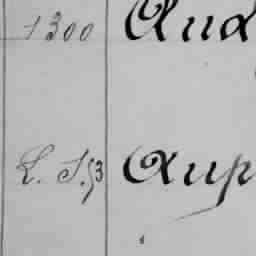 1300 Aud
L. S. 93 Aup